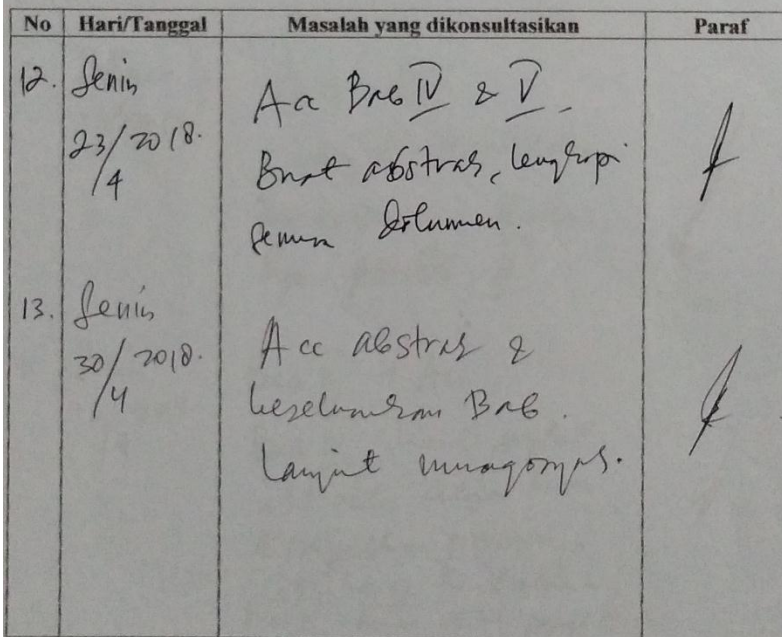 No Hari/Tanggal Masalah yang dikonsultasikan Paraf
12. Senin Acc Bab IV & V.
23/4 2018. Buat abstrak, lengkapi
semua dokumen.
13. Senin Acc abstrak &
30/4 2018. keseluruhan Bab.
Lanjut munaqosyah.